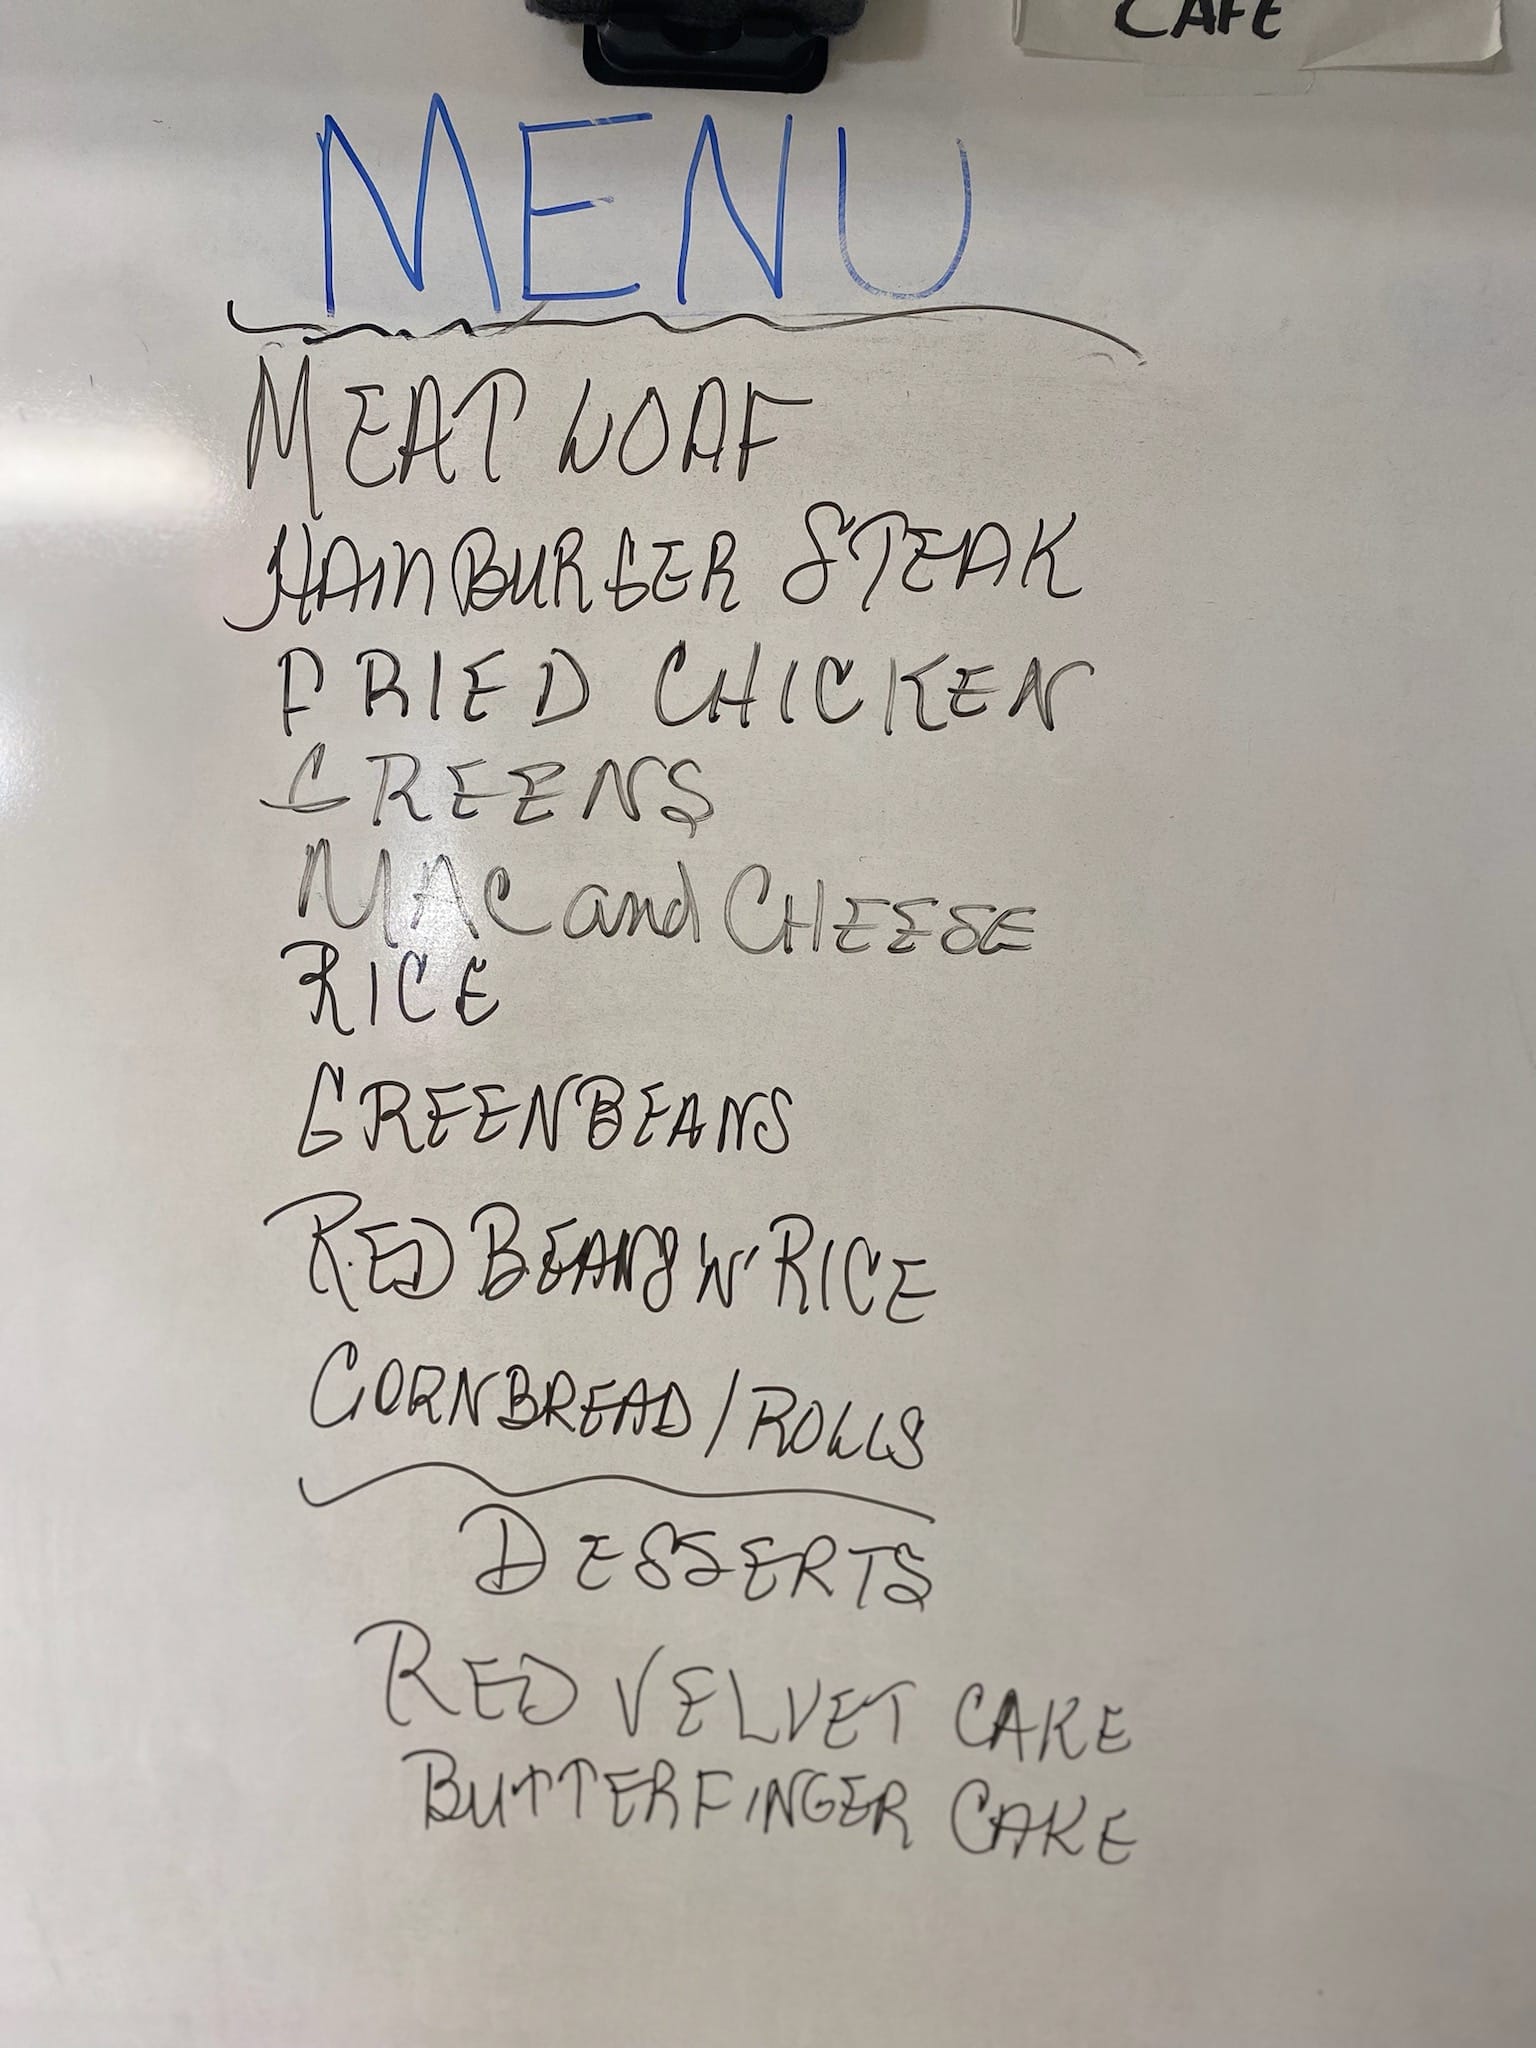 CAFE
MENU
MEAT LOAF
HAMBURGER STEAK
FRIED CHICKEN
GREENS
MAC and CHEESE
RICE
GREENBEANS
RED BEANS 'N' RICE
CORNBREAD/ROLLS
DESSERTS
RED VELVET CAKE
BUTTERFINGER CAKE